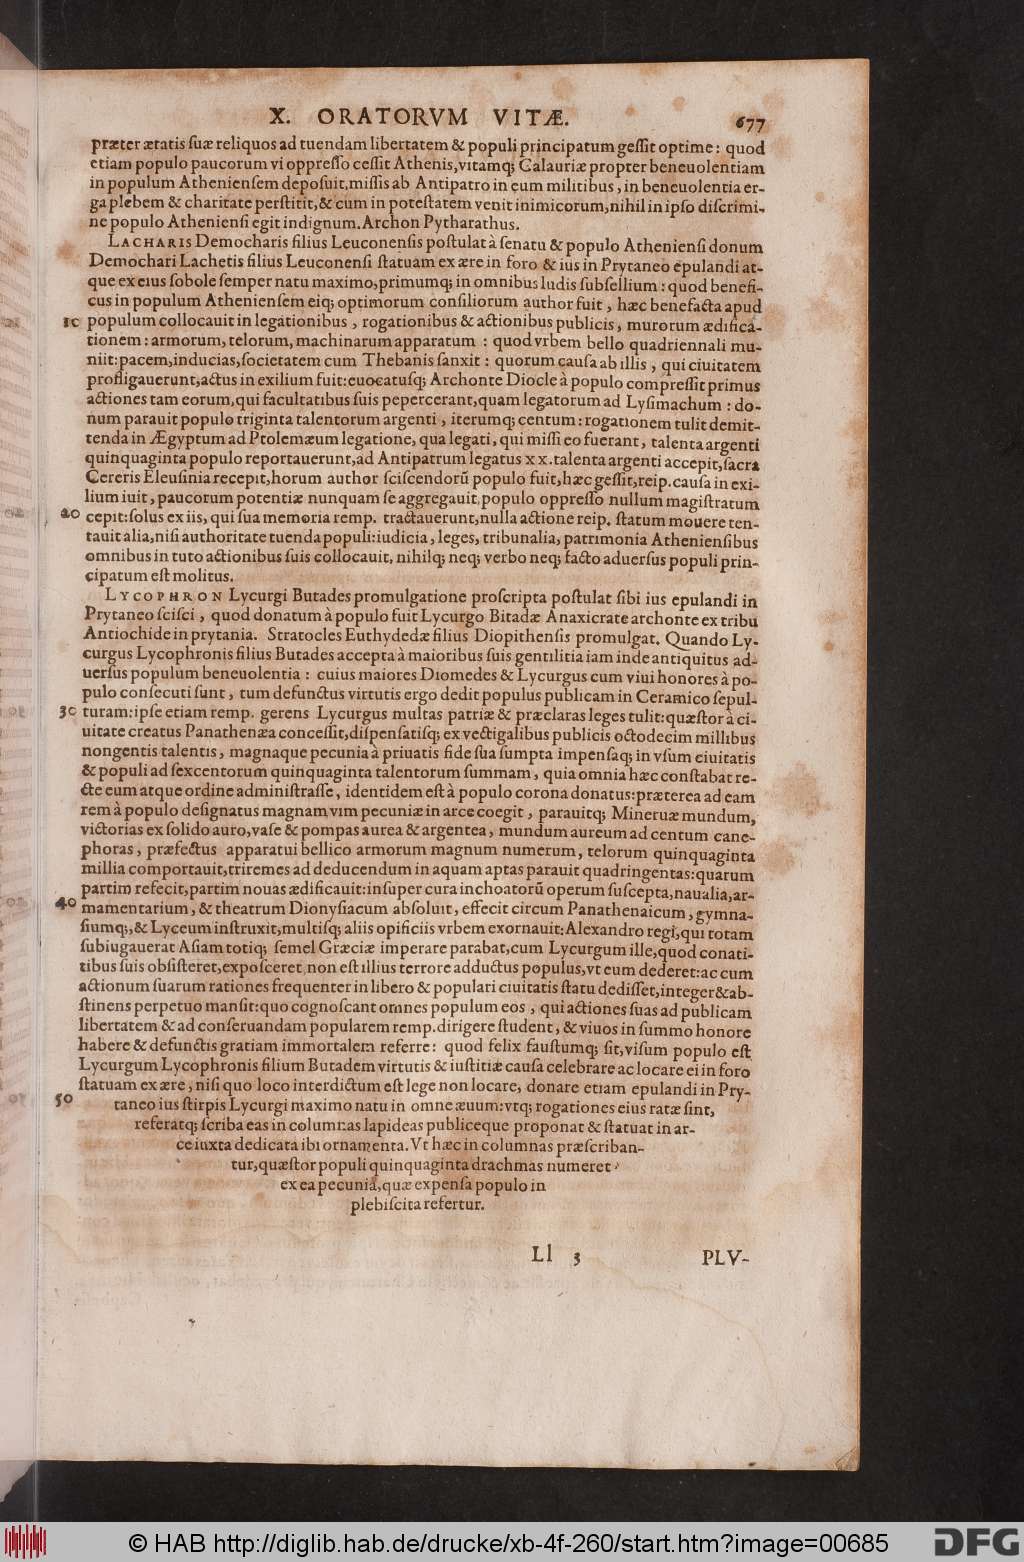 X. ORATORVM VITÆ. 677
præter ætatis suæ reliquos ad tuendam libertatem & populi principatum gessit optime: quod
etiam populo paucorum vi oppresso cessit Athenis, vitamq; Calauriæ propter beneuolentiam
in populum Atheniensem deposuit, missis ab Antipatro in eum militibus, in beneuolentia er-
ga plebem & charitate perstitit, & cum in potestatem venit inimicorum, nihil in ipso discrimi-
ne populo Atheniensi egit indignum. Archon Pytharathus.
LACHARIS Democharis filius Leuconensis postulat à senatu & populo Atheniensi donum
Demochari Lachetis filius Leuconensi statuam ex ære in foro & ius in Prytaneo epulandi at-
que ex eius sobole semper natu maximo, primumq; in omnibus ludis subsellium: quod benefi-
cus in populum Atheniensem eiq; optimorum consiliorum author fuit, hæc benefacta apud
10 populum collocauit in legationibus, rogationibus & actionibus publicis, murorum ædifica-
tionem: armorum, telorum, machinarum apparatum: quod vrbem bello quadriennali mu-
niit: pacem, inducias, societatem cum Thebanis sanxit: quorum causa ab illis, qui ciuitatem
profligauerunt, actus in exilium fuit: euocatusq; Archonte Diocle à populo compressit primus
actiones tam eorum, qui facultatibus suis pepercerant, quam legatorum ad Lysimachum: do-
num parauit populo triginta talentorum argenti, iterumq; centum: rogationem tulit demit-
tenda in Ægyptum ad Ptolemæum legatione, qua legati, qui missi eo fuerant, talenta argenti
quinquaginta populo reportauerunt, ad Antipatrum legatus xx. talenta argenti accepit, sacra
Cereris Eleusinia recepit, horum author sciscendorũ populo fuit, hæc gessit, reip. causa in exi-
lium iuit, paucorum potentiæ nunquam se aggregauit, populo oppresso nullum magistratum
20 cepit: solus ex iis, qui sua memoria remp. tractauerunt, nulla actione reip. statum mouere ten-
tauit alia, nisi authoritate tuenda populi: iudicia, leges, tribunalia, patrimonia Atheniensibus
omnibus in tuto actionibus suis collocauit, nihilq; neq; verbo neq; facto aduersus populi prin-
cipatum est molitus.
LYCOPHRON Lycurgi Butades promulgatione proscripta postulat sibi ius epulandi in
Prytaneo scisci, quod donatum à populo fuit Lycurgo Bitadæ Anaxicrate archonte ex tribu
Antiochide in prytania. Stratocles Euthydedæ filius Diopithensis promulgat. Quando Ly-
curgus Lycophronis filius Butades accepta à maioribus suis gentilitia iam inde antiquitus ad-
uersus populum beneuolentia: cuius maiores Diomedes & Lycurgus cum viui honores à po-
pulo consecuti sunt, tum defunctus virtutis ergo dedit populus publicam in Ceramico sepul-
30 turam: ipse etiam remp. gerens Lycurgus multas patriæ & præclaras leges tulit: quæstor à ci-
uitate creatus Panathenæa concessit, dispensatisq; ex vectigalibus publicis octodecim millibus
nongentis talentis, magnaque pecunia à priuatis fide sua sumpta impensaq; in vsum ciuitatis
& populi ad sexcentorum quinquaginta talentorum summam, quia omnia hæc constabat re-
cte eum atque ordine administrasse, identidem est à populo corona donatus: præterea ad eam
rem à populo designatus magnam vim pecuniæ in arce coegit, parauitq; Mineruæ mundum,
victorias ex solido auro, vase & pompas aurea & argentea, mundum aureum ad centum cane-
phoras, præfectus apparatui bellico armorum magnum numerum, telorum quinquaginta
millia comportauit, triremes ad deducendum in aquam aptas parauit quadringentas: quarum
partim refecit, partim nouas ædificauit: insuper cura inchoatorũ operum suscepta, naualia, ar-
40 mamentarium, & theatrum Dionysiacum absoluit, effecit circum Panathenaicum, gymna-
siumq;, & Lyceum instruxit, multisq; aliis opificiis vrbem exornauit: Alexandro regi, qui totam
subiugauerat Asiam totiq; semel Græciæ imperare parabat, cum Lycurgum ille, quod conati-
tibus suis obsisteret, exposceret, non est illius terrore adductus populus, vt eum dederet: ac cum
actionum suarum rationes frequenter in libero & populari ciuitatis statu dedisset, integer & ab-
stinens perpetuo mansit: quo cognoscant omnes populum eos, qui actiones suas ad publicam
libertatem & ad conseruandam popularem remp. dirigere student, & viuos in summo honore
habere & defunctis gratiam immortalem referre: quod felix faustumq; sit, visum populo est
Lycurgum Lycophronis filium Butadem virtutis & iustitiæ causa celebrare ac locare ei in foro
statuam ex ære, nisi quo loco interdictum est lege non locare, donare etiam epulandi in Pry-
50 taneo ius stirpis Lycurgi maximo natu in omne æuum: vtq; rogationes eius ratæ sint,
referatq; scriba eas in columnas lapideas publiceque proponat & statuat in ar-
ce iuxta dedicata ibi ornamenta. Vt hæc in columnas præscriban-
tur, quæstor populi quinquaginta drachmas numeret
ex ea pecuniâ, quæ expensa populo in
plebiscita refertur.
Ll 3 PLV-
© HAB http://diglib.hab.de/drucke/xb-4f-260/start.htm?image=00685 DFG